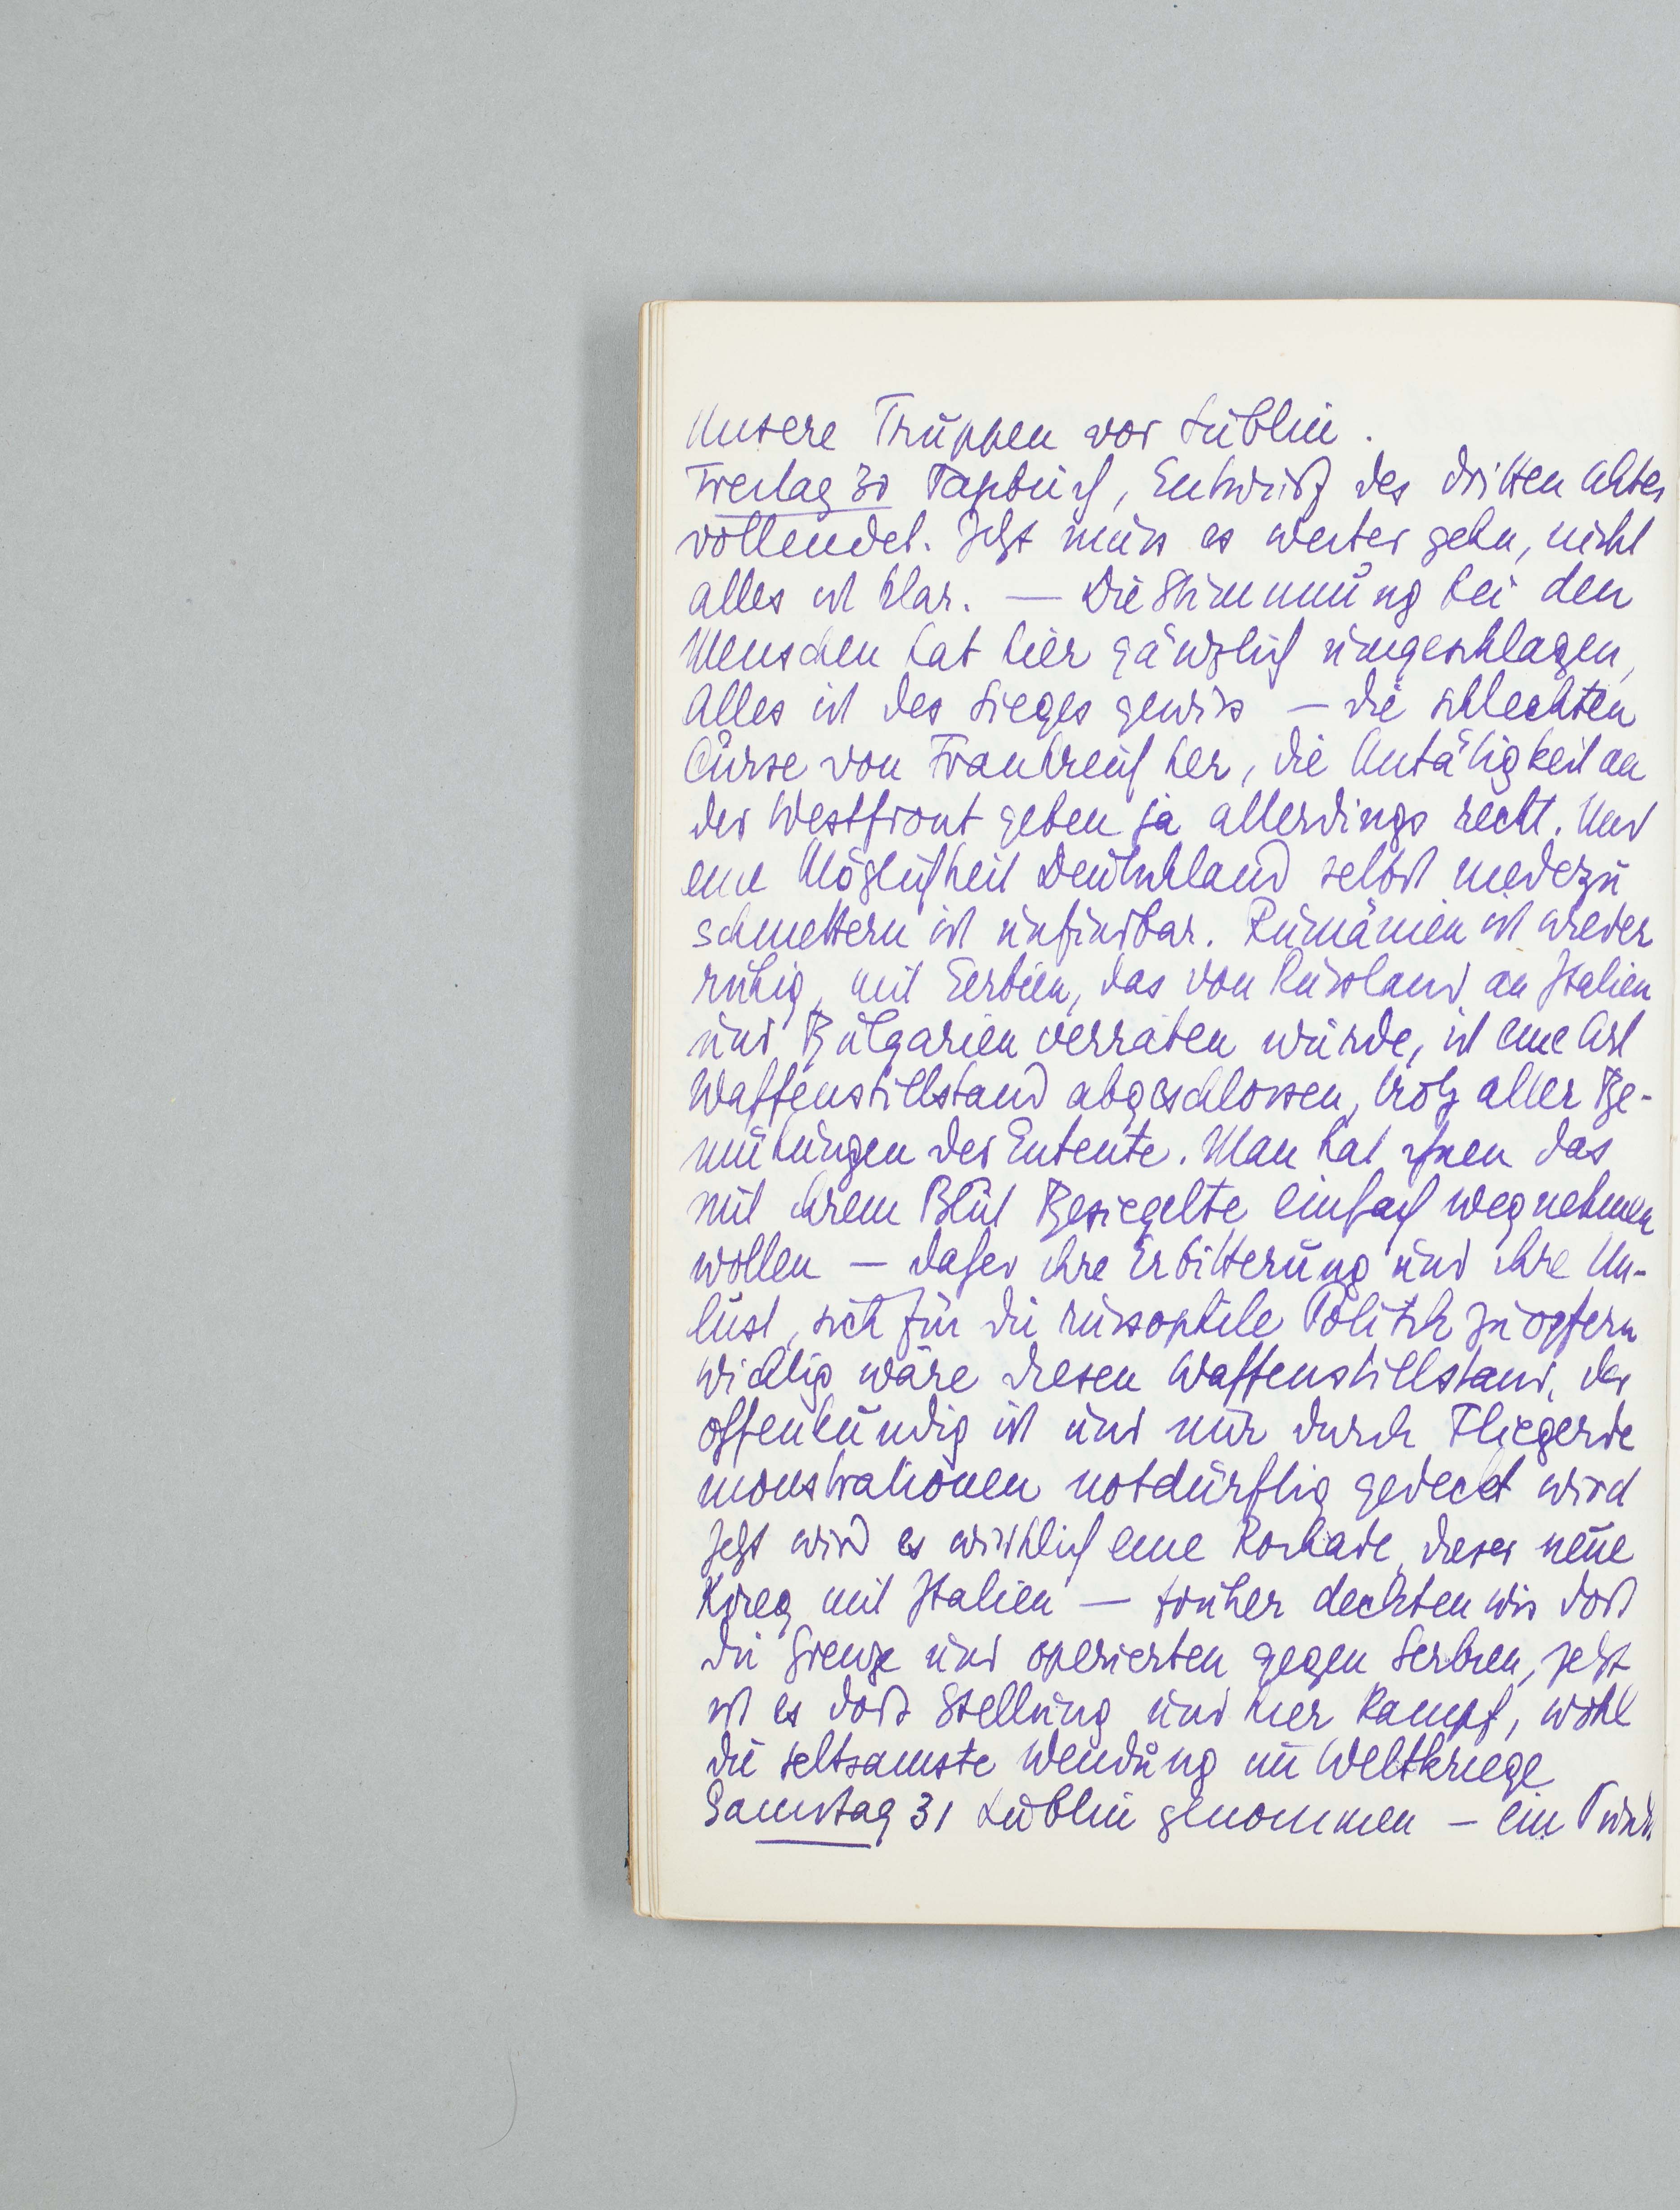 Unsere Truppen vor Lublin.
Freitag 30 Tagbuch, Entwurf des dritten Aktes
vollendet. Jetzt muss es weiter gehn, nicht
alles ist klar. — Die Stimmung bei den
Menschen hat hier gänzlich umgeschlagen,
Alles ist des Sieges gewiss — die schlechten
Curse von Frankreich her, die Untätigkeit an
der Westfront geben ja allerdings recht. Und
eine Möglichkeit Deutschland selbst niederzu
schmettern ist unfindbar. Rumänien ist wieder
ruhig, mit Serbien, das von Russland an Italien
und Bulgarien verraten wurde, ist eine Art
Waffenstillstand abgeschlossen, trotz aller Be-
mühungen der Entente. Man hat ihnen das
mit ihrem Blut Besiegelte einfach wegnehmen
wollen — daher ihre Erbitterung und ihre Un-
lust, sich für die russophile Politik zu opfern
Wichtig wäre diesen Waffenstillstand, der
offenkundig ist und nur durch Fliegerde
monstrationen notdürftig gedeckt wird
Jetzt wird es wirklich eine Rochade, dieser neue
Krieg mit Italien — früher deckten wir dort
die Grenze und operierten gegen Serbien, jetzt
ist es dort Stellung und hier Kampf, wohl
die seltsamste Wendung im Weltkriege
Samstag 31 Lublin genommen — ein